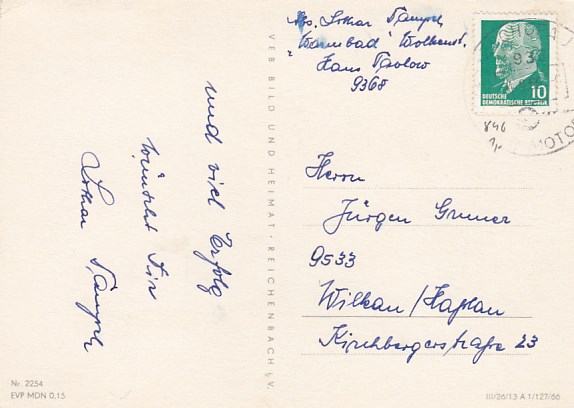 und viel Erfolg
wünscht Dir
Lothar Tämpel
VEB BILD UND HEIMAT · REICHENBACH I. V.
Abs. Lothar Tämpel
"Warmbad" Wolkenst.
Haus Pavlow
9368
DEUTSCHE
DEMOKRATISCHE REPUBLIK
10
93
MOTOR
846
Herrn
Jürgen Gruner
9533
Wilkau/Haßlau
Kirchbergerstraße 23
Nr. 2254
EVP MDN 0,15
III/26/13 A 1/127/66